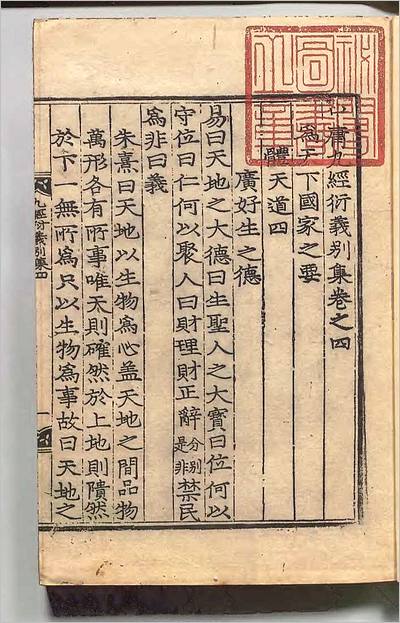 中庸九經衍義別集卷之四
爲天下國家之要
體天道四
廣好生之德
易曰天地之大德曰生聖人之大寶曰位何以
守位曰仁何以聚人曰財理財正辭分別是非禁民
爲非曰義
朱熹曰天地以生物爲心盖天地之間品物
萬形各有所事唯天則確然於上地則隤然
於下一無所爲只以生物爲事故曰天地之
九經衍義別集四